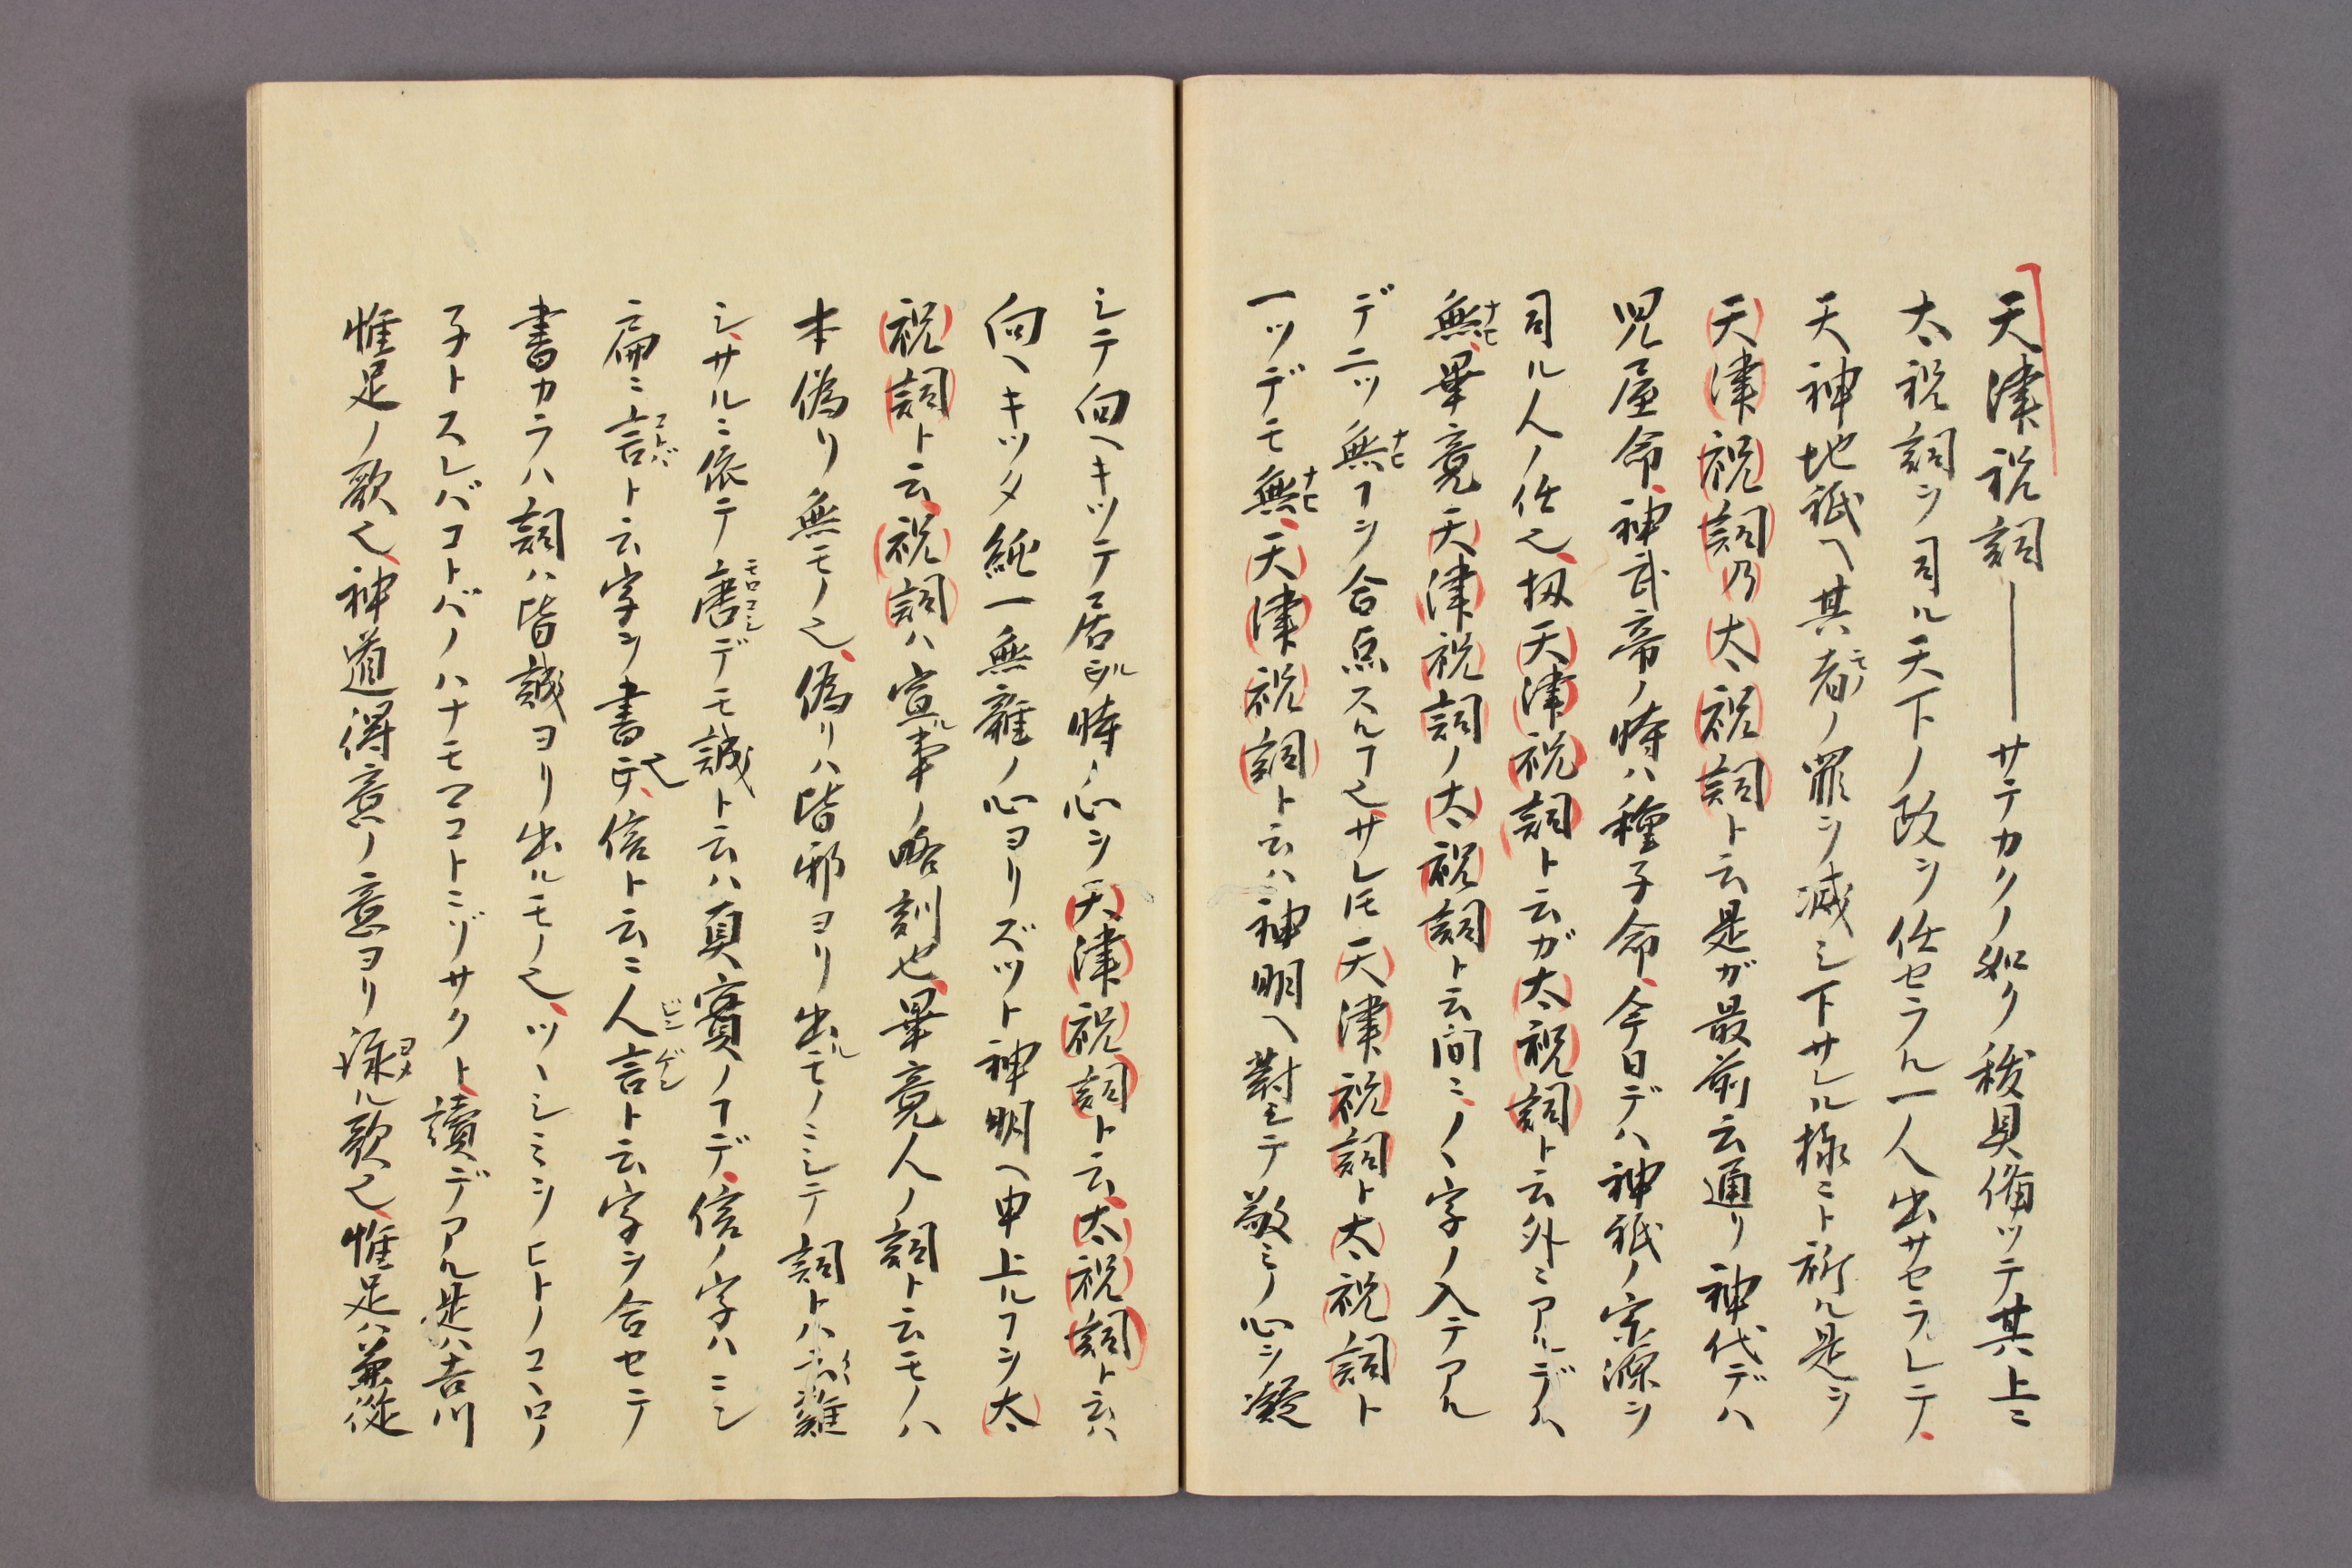 天津祝詞――サテカクノ如ク祓具備ツテ其上ニ
太祝詞ヲ司ル天下ノ政ヲ任セラル一人出サセラレテ、
天神地祇ヘ其者モノノ罪ヲ滅シ下サル様ニト祈ル是ヲ
天津祝詞乃太祝詞ト云是ガ最前云通リ神代デハ
児屋命、神武帝ノ時ハ種子命、今日デハ神祇ノ宗源ヲ
司ル人ノ任也、扨天津祝詞ト云ガ太祝詞ト云外ニアルデハ
無ナヒ、畢竟天津祝詞ノ太祝詞ト云間ニ、ノヽ字ノ入テアル
デ二ツ無ナヒヿヲ合点スルヿ也、サレ𪜈天津祝詞ト太祝詞ト
一ツデモ無ナヒ、天津祝詞ト云ハ神明ヘ對シテ敬ミノ心ヲ凝
シテ向ヘキツテヱ居ル時ヽ心ヲ天津祝詞ト云、太祝詞ト云ハ
向ヘキツタ純一無雜ノ心ヨリズツト神明ヘ申上ルヿヲ太
祝詞ト云、祝詞ハ宣ル事ノ略訓也、畢竟人ノ詞ト云モノハ
本偽リ無モノ也、偽リハ皆邪ヨリ出ルモノニシテ詞トハ難
シ、サルニ依テ唐モロコシデモ誠ト云ハ眞實ノヿデ、信ノ字ハニシ
扁ニ言コトバト云字ヲ書也、信ト云ニ人ジン言ゲント云字ヲ合セテ
書カラハ詞ハ皆誠ヨリ出ルモノ也、ツヽシミヲヒトノコヽロノ
子トスレバコトバノハナモマコトニゾサクト、讀デアル是ハ吉川
惟足ノ歌也、神道得意ノ意ヨリ詠ヨメル歌也、惟足ハ兼從